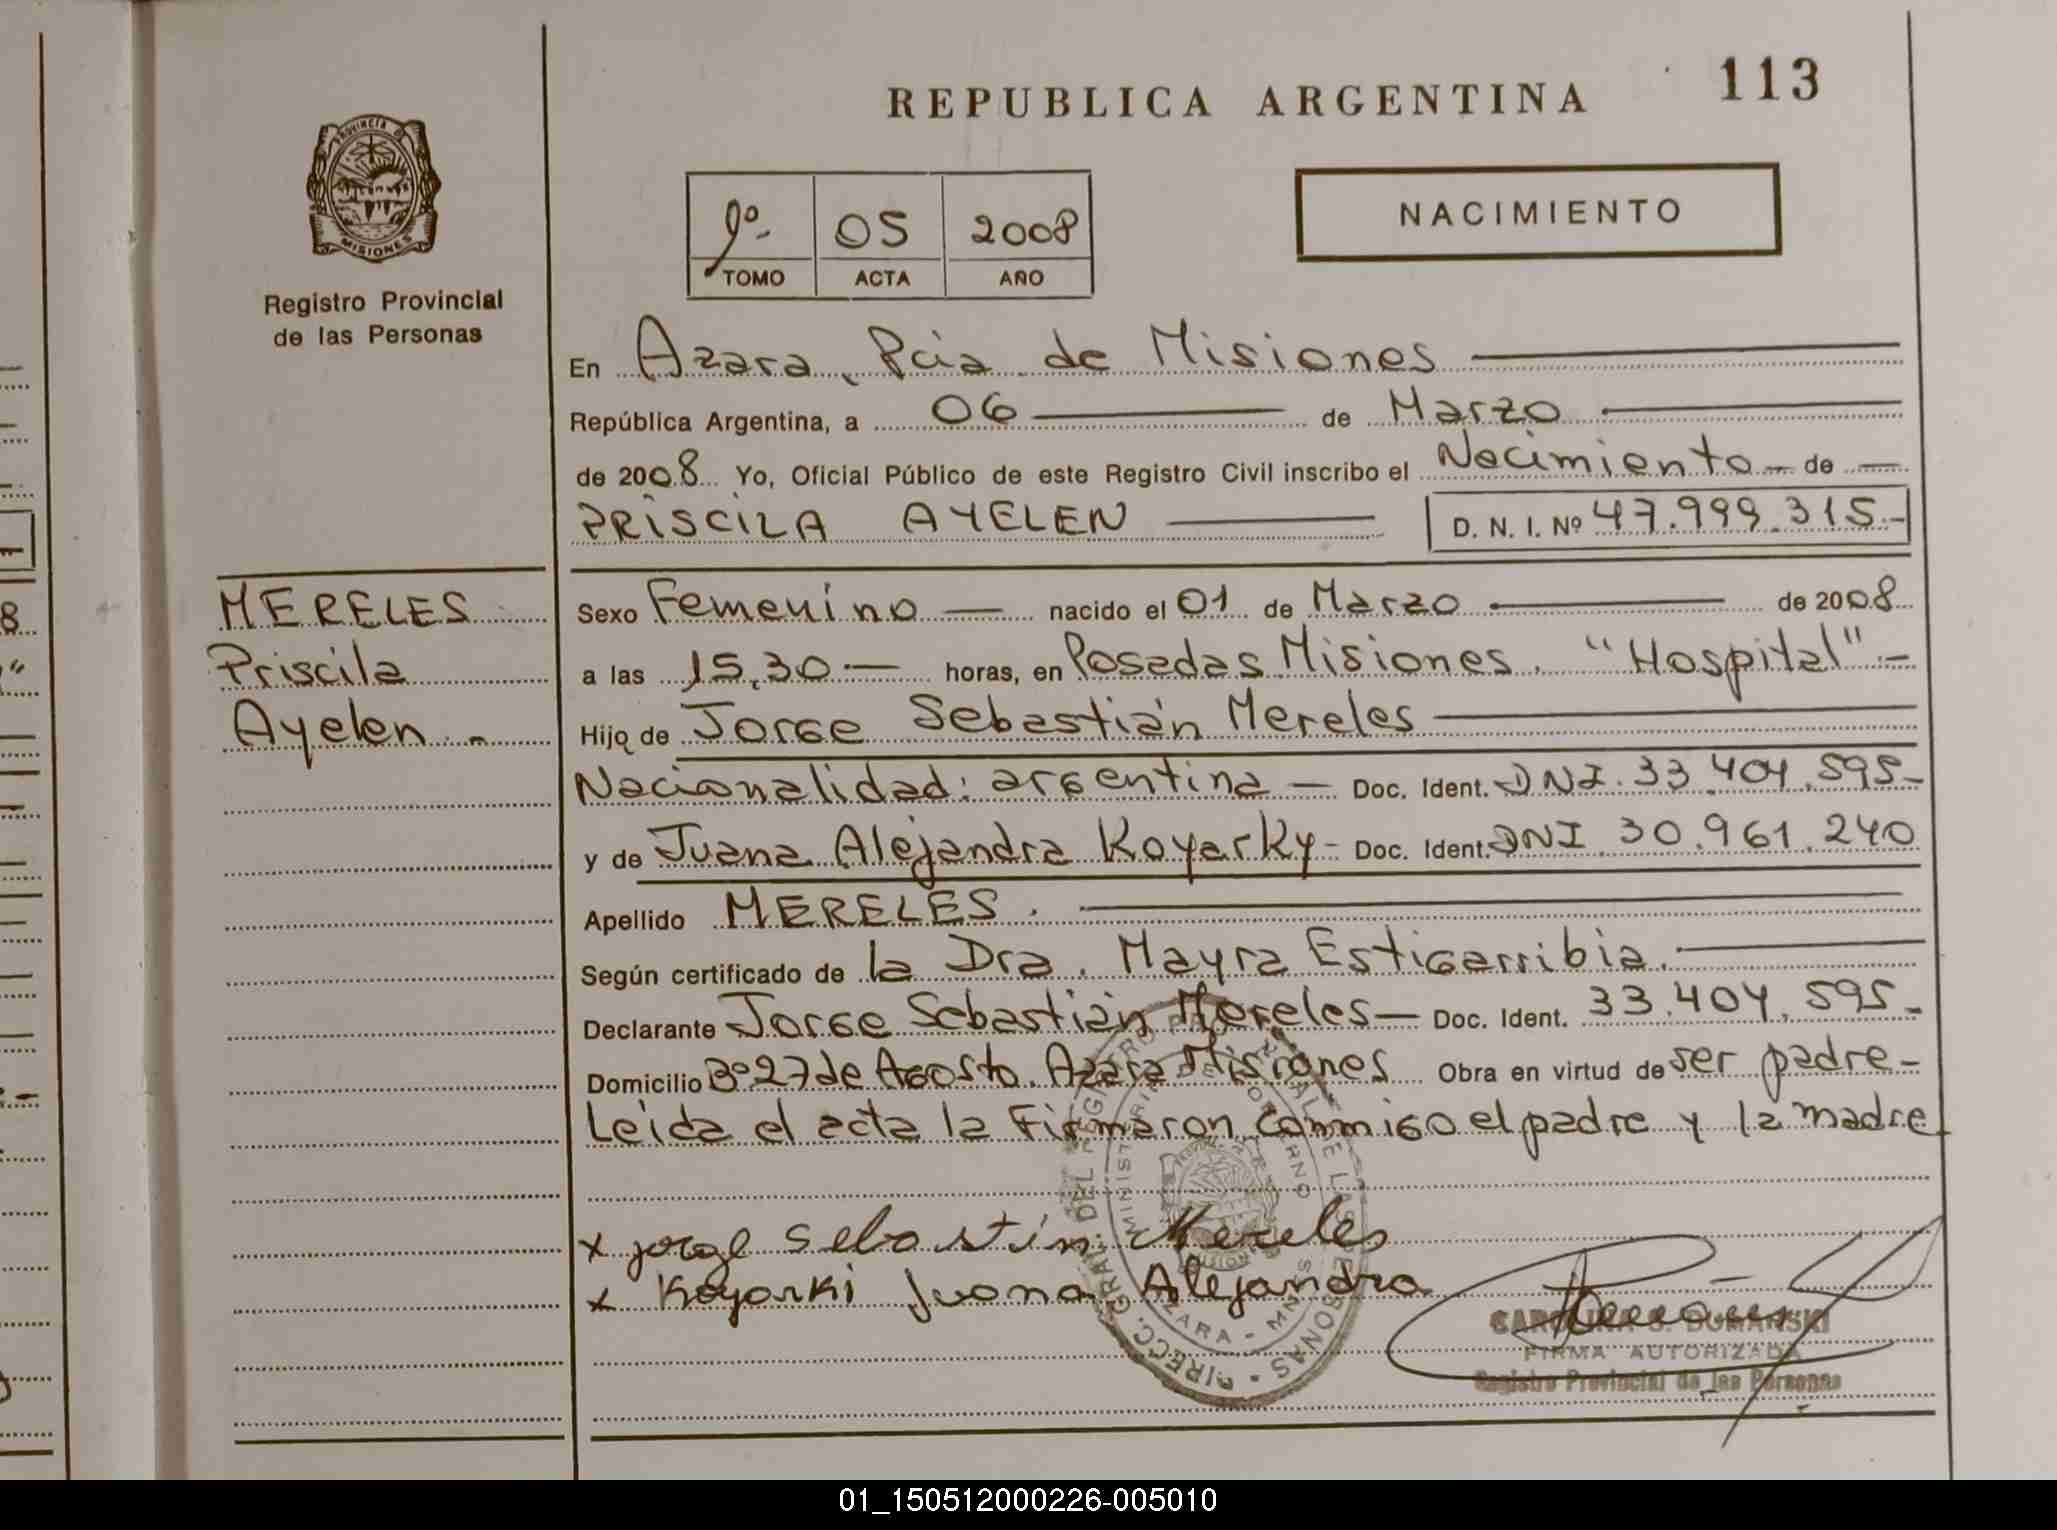 REPUBLICA ARGENTINA 113
PROVINCIA DE
MISIONES
Registro Provincial
de las Personas
9º- 05 2008
TOMO ACTA AÑO
NACIMIENTO
En Azara, Pcia de Misiones
República Argentina, a 06 de Marzo
de 2008 Yo, Oficial Público de este Registro Civil inscribo el Nacimiento - de -
PRISCILA AYELEN D. N. I. Nº 47.999.315.-
MERELES
Priscila
Ayelen.-
Sexo Femenino nacido el 01 de Marzo de 2008
a las 15,30 horas, en Posadas Misiones. "Hospital".-
Hijo de Jorge Sebastián Mereles
Nacionalidad: argentina - Doc. Ident. DNI. 33.404.595-
y de Juana Alejandra Koyarky - Doc. Ident. DNI 30.961.240
Apellido MERELES.
Según certificado de la Dra. Mayra Estigarribia.
Declarante Jorge Sebastián Mereles - Doc. Ident. 33.404.595-
Domicilio Bº27 de Agosto. Azara Misiones Obra en virtud de ser padre-
Leida el acta la Firmaron conmigo el padre y la madre
x jorge Sebastin Mereles
x Koyarki Juana Alejandra
CAROLINA S. DUMANSKI
FIRMA AUTORIZADA
Registro Provincial de las Personas
01_150512000226-005010